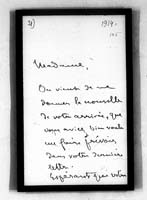 1914.
Madame,
On vient de me
donner la nouvelle
de votre arrivée, que
vous aviez bien voulu
me faire prévoir
dans votre dernière
lettre.
Espérant que votre